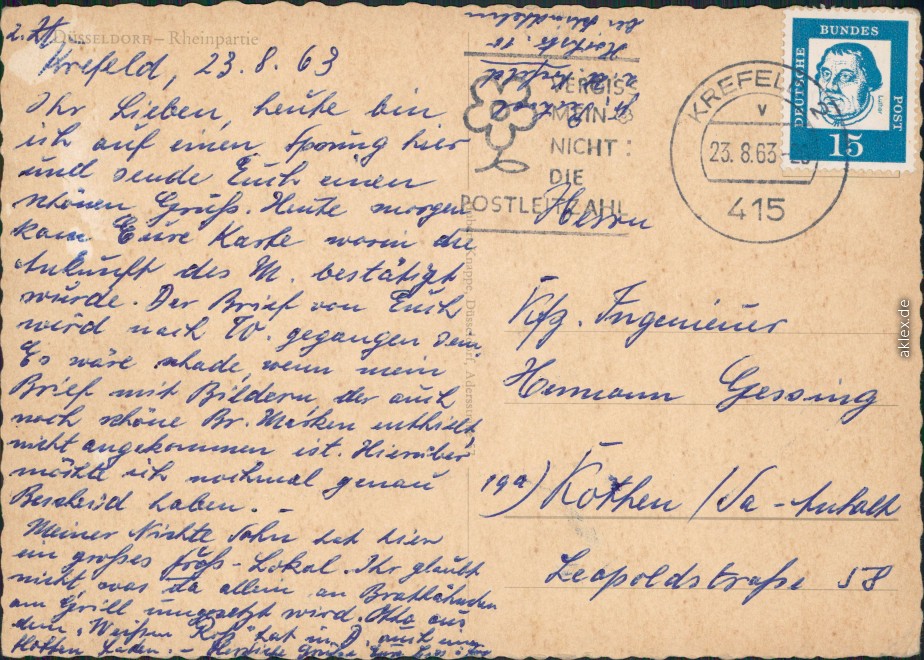 DÜSSELDORF – Rheinpartie
z. Zt.
Krefeld, 23.8.63
Ihr Lieben, heute bin
ich auf einen Sprung hier
und sende Euch einen
schönen Gruß. Heute morgen
kam Eure Karte worin die
Ankunft des M. bestätigt
wurde. Der Brief von Euch
wird nach W. gegangen sein
Es wäre schade, wenn mein
Brief mit Bildern, der auch
noch schöne Br. Marken enthielt
nicht angekommen ist. Hierüber
möchte ich nochmal genau
Bescheid haben. –
Meiner Nichte Sohn hat hier
ein großes Lokal. Ihr glaubt
nicht, was da allein an Brathähnchen
am Grill umgesetzt wird. Otto aus
dem "Weißen Roß" hat in D. auch einen
Laden. – Herzliche Grüße
z. Zt. Krefeld
VERGISS
MEIN
NICHT:
DIE
POSTLEITZAHL
KREFELD
v
23.8.63
415
DEUTSCHE BUNDESPOST
Luther
15
Herrn
Kfz. Ingenieur
Hermann Gessing
19a) Köthen / Sa-Anhalt
Leopoldstraße 58
Knappe, Düsseldorf, Adersstr.
aklex.de